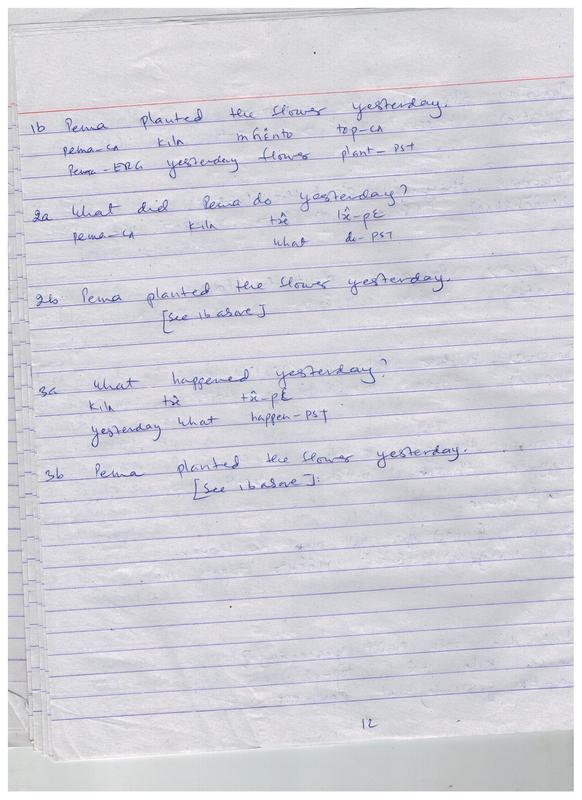 1b Pema planted the flower yesterday.
pema-ca kila mhento top-ca
Pema-ERG yesterday flower plant-PST
2a What did Pema do yesterday?
pema-ca kila
what do-PST
2b Pema planted the flower yesterday.
[See 1b above]
3a What happened yesterday?
kila
yesterday what happen-PST
3b Pema planted the flower yesterday.
[See 1b above].
12